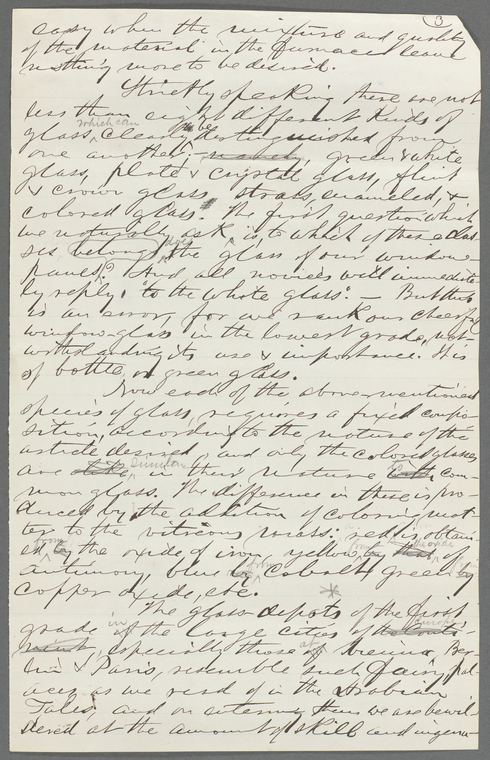 3
easy when the mixture and quality
of the material in the furnaces leave
nothing more to be desired.
Strictly speaking there are not
less than eight different kinds of
glass, which can clearly be distinguished from
one another: namely, green & white
glass, plate & crystal glass, flint
& crown glass, strass, enameled, &
colored glass. The first question which
we naturally ask is, to which of these clas-
ses belongs does the glass of our window
panes? And all novices will immediate-
ly reply, "to the white glass". — But this
is an error, for we rank our cheerful
window-glass in the lowest grade, not-
withstanding its use & importance. It is
of bottle or green glass.
Now each of the above mentioned
species of glass, requires a fixed compo-
sition, according to the nature of the
article desired, and only the colored glasses
are like similar in their mixture with to com-
mon glass. The difference in these is pro-
duced by the addition of coloring mat-
ter to the vitreous mass: red is obtain-
ed by from the oxide of iron, yellow by that of
antimony, blue by from cobalt, green by
copper oxide, etc.
The glass depots of the first
grade of in the large cities of the Conti-
nent Europe, especially those of at Vienna, Ber-
lin & Paris, resemble such fairy pal-
aces as we read of in the Arabian
Tales, and on entering them we are bewil-
dered at the amount of skill and ingenu-